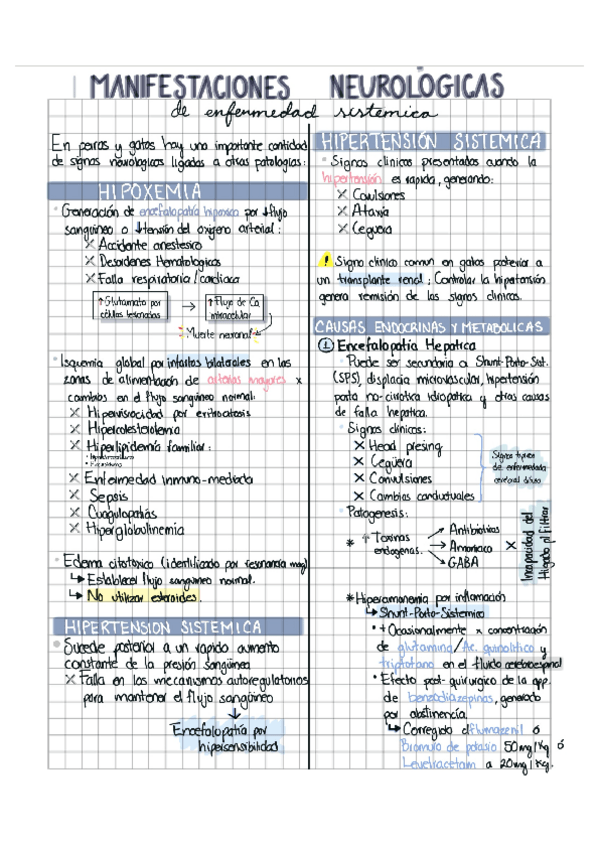 MANIFESTACIONES NEUROLÓGICAS
de enfermedad sistemica
En perros y gatos hay una importante cantidad
de signos neurologicos ligadas a otras patologías:
HIPOXEMIA
Generación de encefalopatía hipoxica por ↓flujo
sanguíneo o ↓tensión del oxigeno arterial:
X Accidente anestesico
X Desordenes Hematologicos
X Falla respiratoria/cardiaca
↑Glutamato por
células lesionadas
→
↑Flujo de Ca
intracelular
Muerte neuronal
Isquemia global por infartos bilaterales en las
zonas de alimentación de arterias mayores x
cambios en el flujo sanguíneo normal:
X Hiperviscocidad por eritrocitosis
X Hipercolesterolemia
X Hiperlipidemia familiar:
X Enfermedad inmuno-mediada
X Sepsis
X Coagulopatías
X Hiperglobulinemia
Edema citotoxico (identificado por resonancia mag)
↳ Establecer flujo sanguíneo normal.
↳ No utilizar esteroides.
HIPERTENSION SISTEMICA
Sucede posterior a un rapido aumento
constante de la presión sanguínea
X Falla en los mecanismos autoregulatorios
para mantener el flujo sanguíneo
↓
Encefalopatía por
hipersensibilidad
HIPERTENSIÓN SISTEMICA
Signos clinicos presentados cuando la
hipertensión es rapida, generando:
X Covulsiones
X Ataxia
X Ceguera
! Signo clinico comun en gatos posterior a
un transplante renal; Controlar la hipertensión
genera remisión de los signos clinicos.
CAUSAS ENDOCRINAS Y METABOLICAS
1 Encefalopatía Hepatica
Puede ser secundaria a Shunt-Porto-Sist.
(SPS), displacia microvascular, hipertensión
porta no-cirrotica idiopatica y otras causas
de falla hepatica.
Signos clinicos:
X Head presing
X Ceguera
X Convulsiones
X Cambios conductuales
Signos tipicos
de enfermedad
cerebral difusa
Patogenesis:
* ↑ Toxinas
endogenas.
Antibióticos
Amoniaco
GABA
X
Incapacidad del
Higado al filtrar
* Hiperamonemia por inflamación
↳ Shunt-Porto-Sistemico
+ Ocasionalmente x concentración
de glutamina/Ac. quinolitico y
triptofano en el fluido cerebroespinal
Efecto post-quirurgico de la app.
de benzodiazepinas, generado
por abstinencia.
↳ Corregido c/flumazenil ó
Bromuro de potasio 50mg/Kg ó
Levetiracetam a 20mg/Kg.